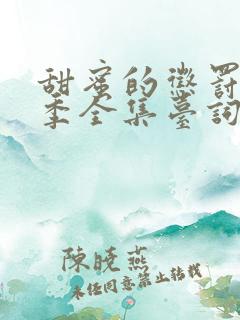 甜蜜的懲罰
季全集臺詞
陳曉燕
未任同意禁止转载